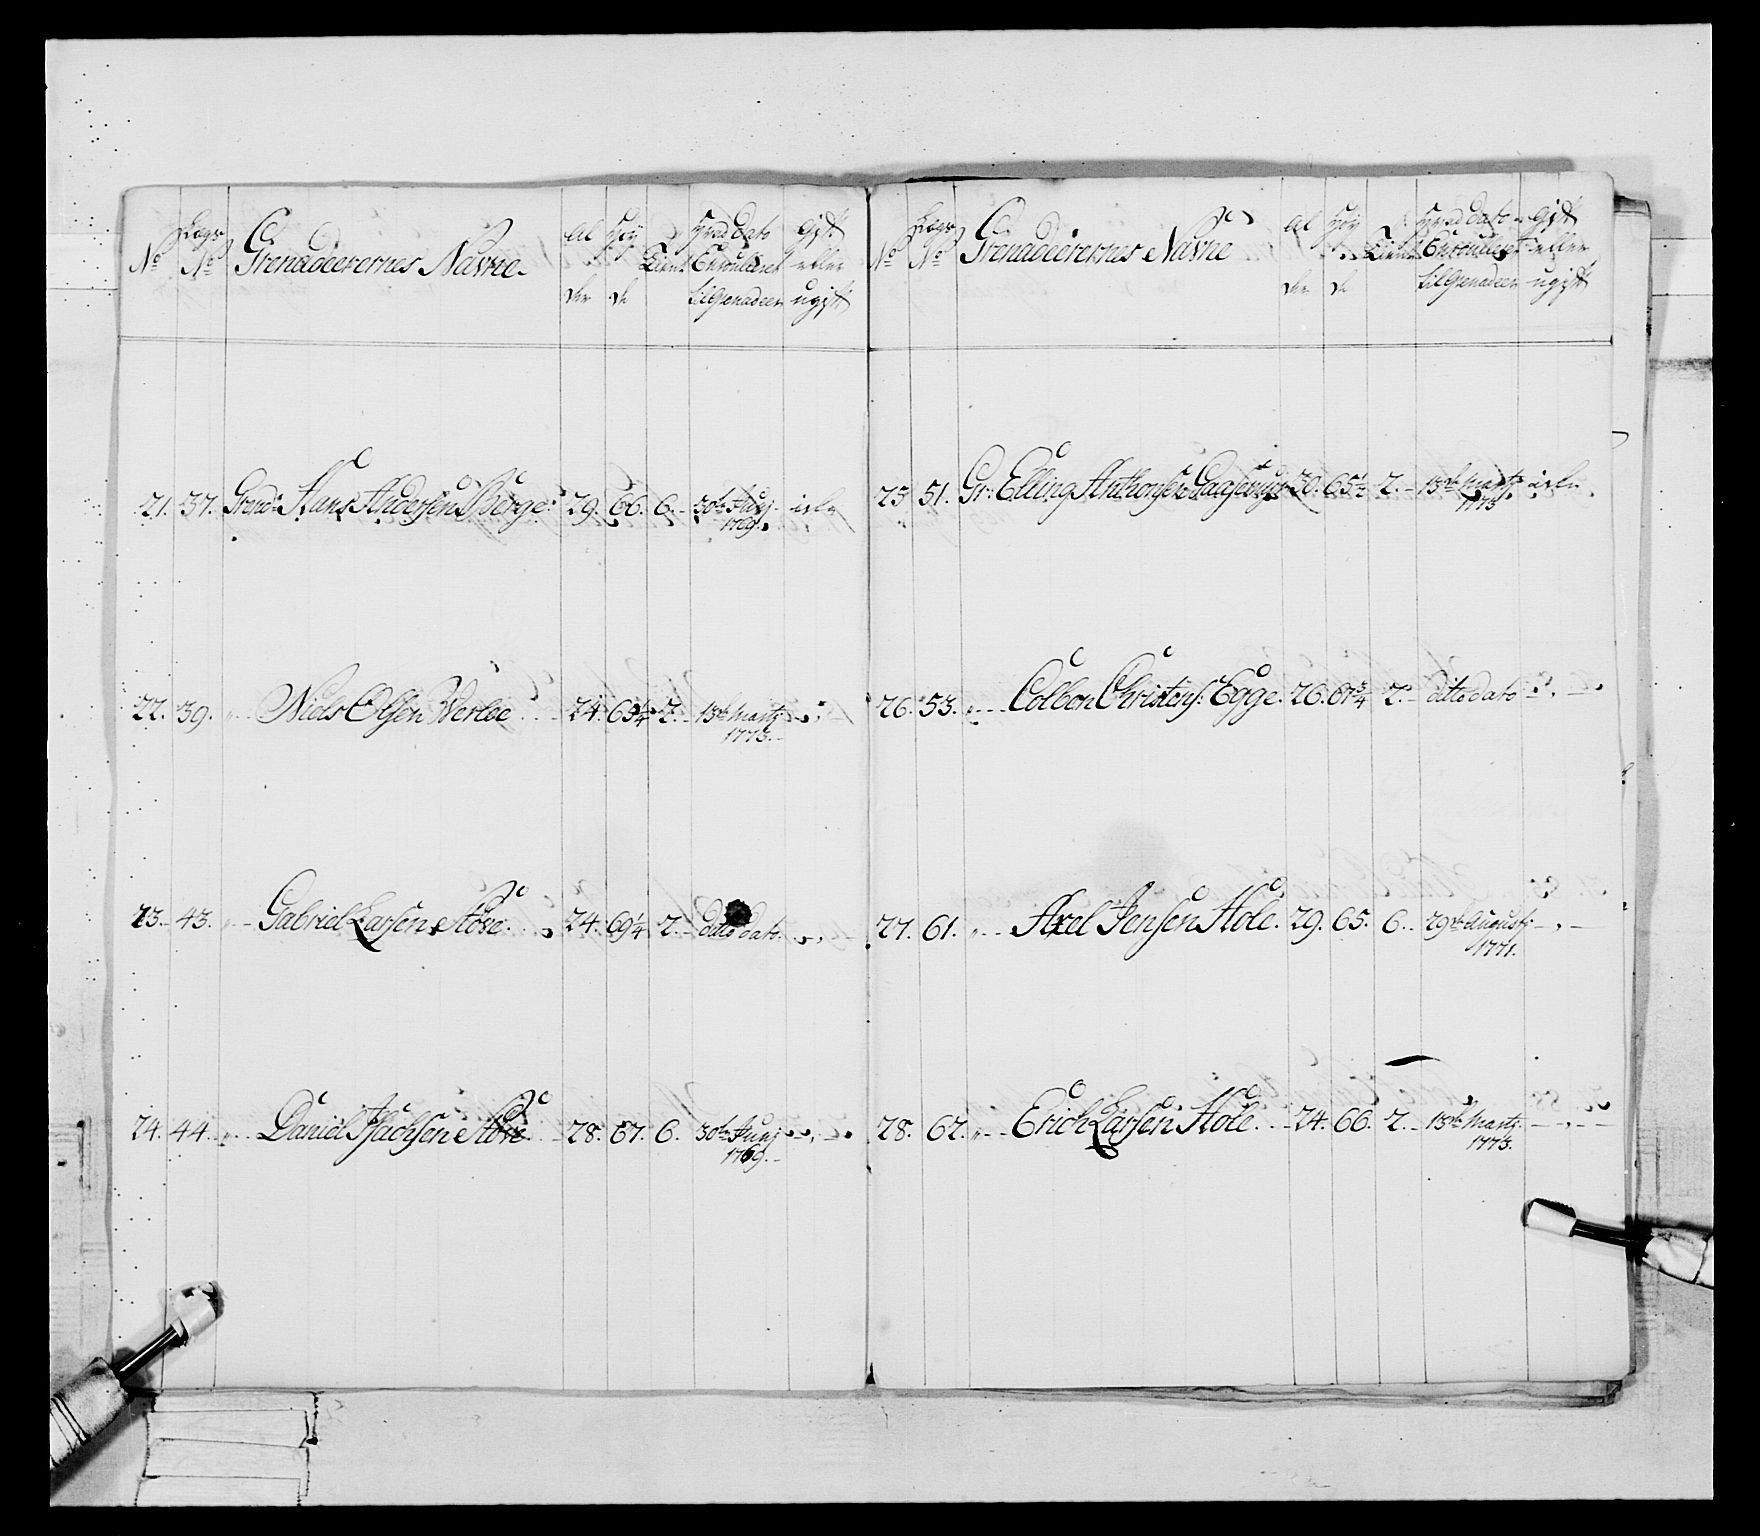 No
Lægs No
Grenadeerernes Navne.
Al der
Høy de
Tient
Hvad Dato Enroulleret til Grenadeer
Gift eller ugift
21. 37. Grend: Hans Andersen Borge: 29. 66. 6. 30te Junj 1769.
22. 39. " Niels Olsen Werlee 24. 65 1/4 2. 15de Martj 1773.
23. 43. " Gabriel Larsen Støve. 24. 69 1/4 2. dito dato.
24. 44. " Daniel Isachsen Støve 28. 67. 6. 30te Junj 1769.
No
Lægs No
Grenadeerernes Navne
Al der
Høy de
Tient
Hvad dato Enroulleret til Grenadeer
Gift eller ugift
25 51. Gr: Elling Anthonsen 30. 65 1/2 2. 15de Martj 1773
26. 53. " Colbon Christens: Egge. 26. 67 3/4 2. ditto dato
27. 61. " Axel Jensen Hole. 29. 65. 6. 29de Augustj 1771.
28. 62. " Erich Larsen Hole. 24. 66. 2. 15de Martj 1773.